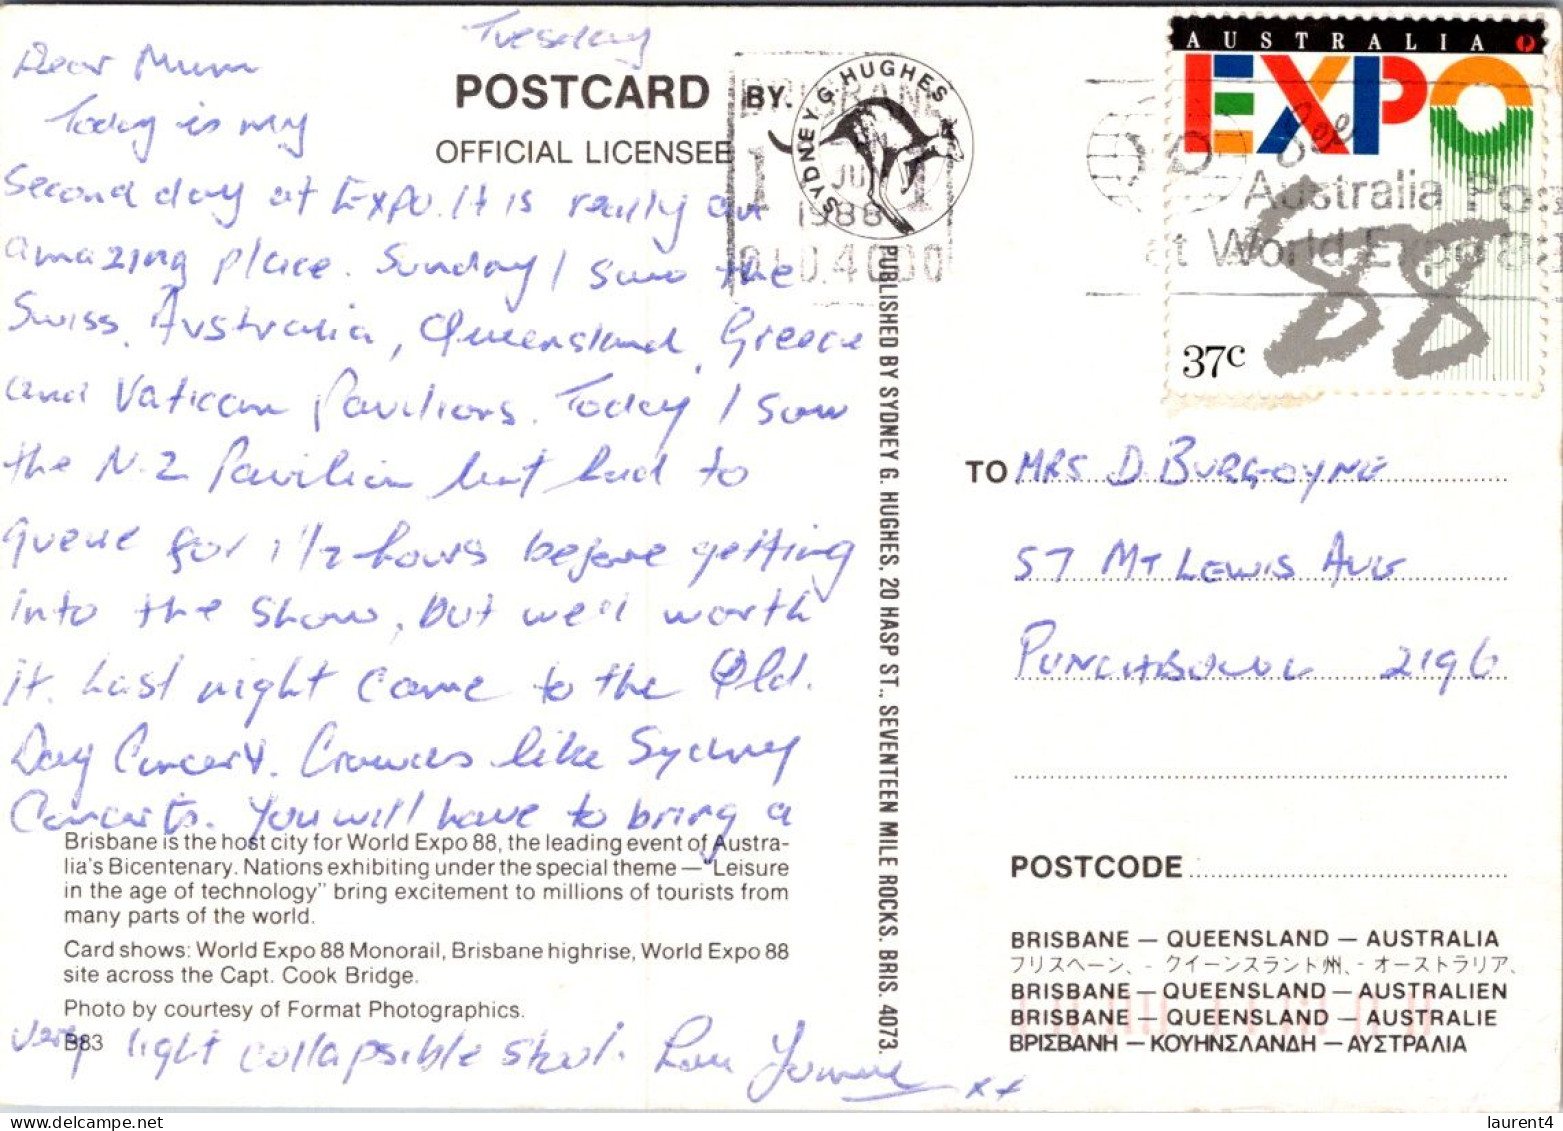 Tuesday
Dear Mum
Today is my
second day at Expo. It is really an
amazing place. Sunday I saw the
Swiss, Australia, Queensland, Greece
and Vatican Pavilions. Today I saw
the N.Z Pavilion but had to
queue for 1 1/2 hours before getting
into the show, but well worth
it. Last night came to the Qld.
Day Concert. Crowds like Sydney
Concerts. You will have to bring a
very light collapsible stool.
xx
POSTCARD BY.
OFFICIAL LICENSEE
SYDNEY G. HUGHES
BRISBANE
1988
QLD. 4000
AUSTRALIA
EXPO
88
37c
Australia Pos
at World Expo 88
PUBLISHED BY SYDNEY G. HUGHES. 20 HASP ST., SEVENTEEN MILE ROCKS. BRIS. 4073.
TO MRS D BURGOYNE
57 MT LEWIS AVE
PUNCHBOWL 2196
POSTCODE
Brisbane is the host city for World Expo 88, the leading event of Austra-
lia's Bicentenary. Nations exhibiting under the special theme — "Leisure
in the age of technology" bring excitement to millions of tourists from
many parts of the world.
Card shows: World Expo 88 Monorail, Brisbane highrise, World Expo 88
site across the Capt. Cook Bridge.
Photo by courtesy of Format Photographics.
B83
BRISBANE — QUEENSLAND — AUSTRALIA
フリスベーン、- クイーンスラント州、- オーストラリア、
BRISBANE — QUEENSLAND — AUSTRALIEN
BRISBANE — QUEENSLAND — AUSTRALIE
ΒΡΙΣΒΑΝΗ — ΚΟΥΗΝΣΛΑΝΔΗ — ΑΥΣΤΡΑΛΙΑ
delcampe.net
laurent4